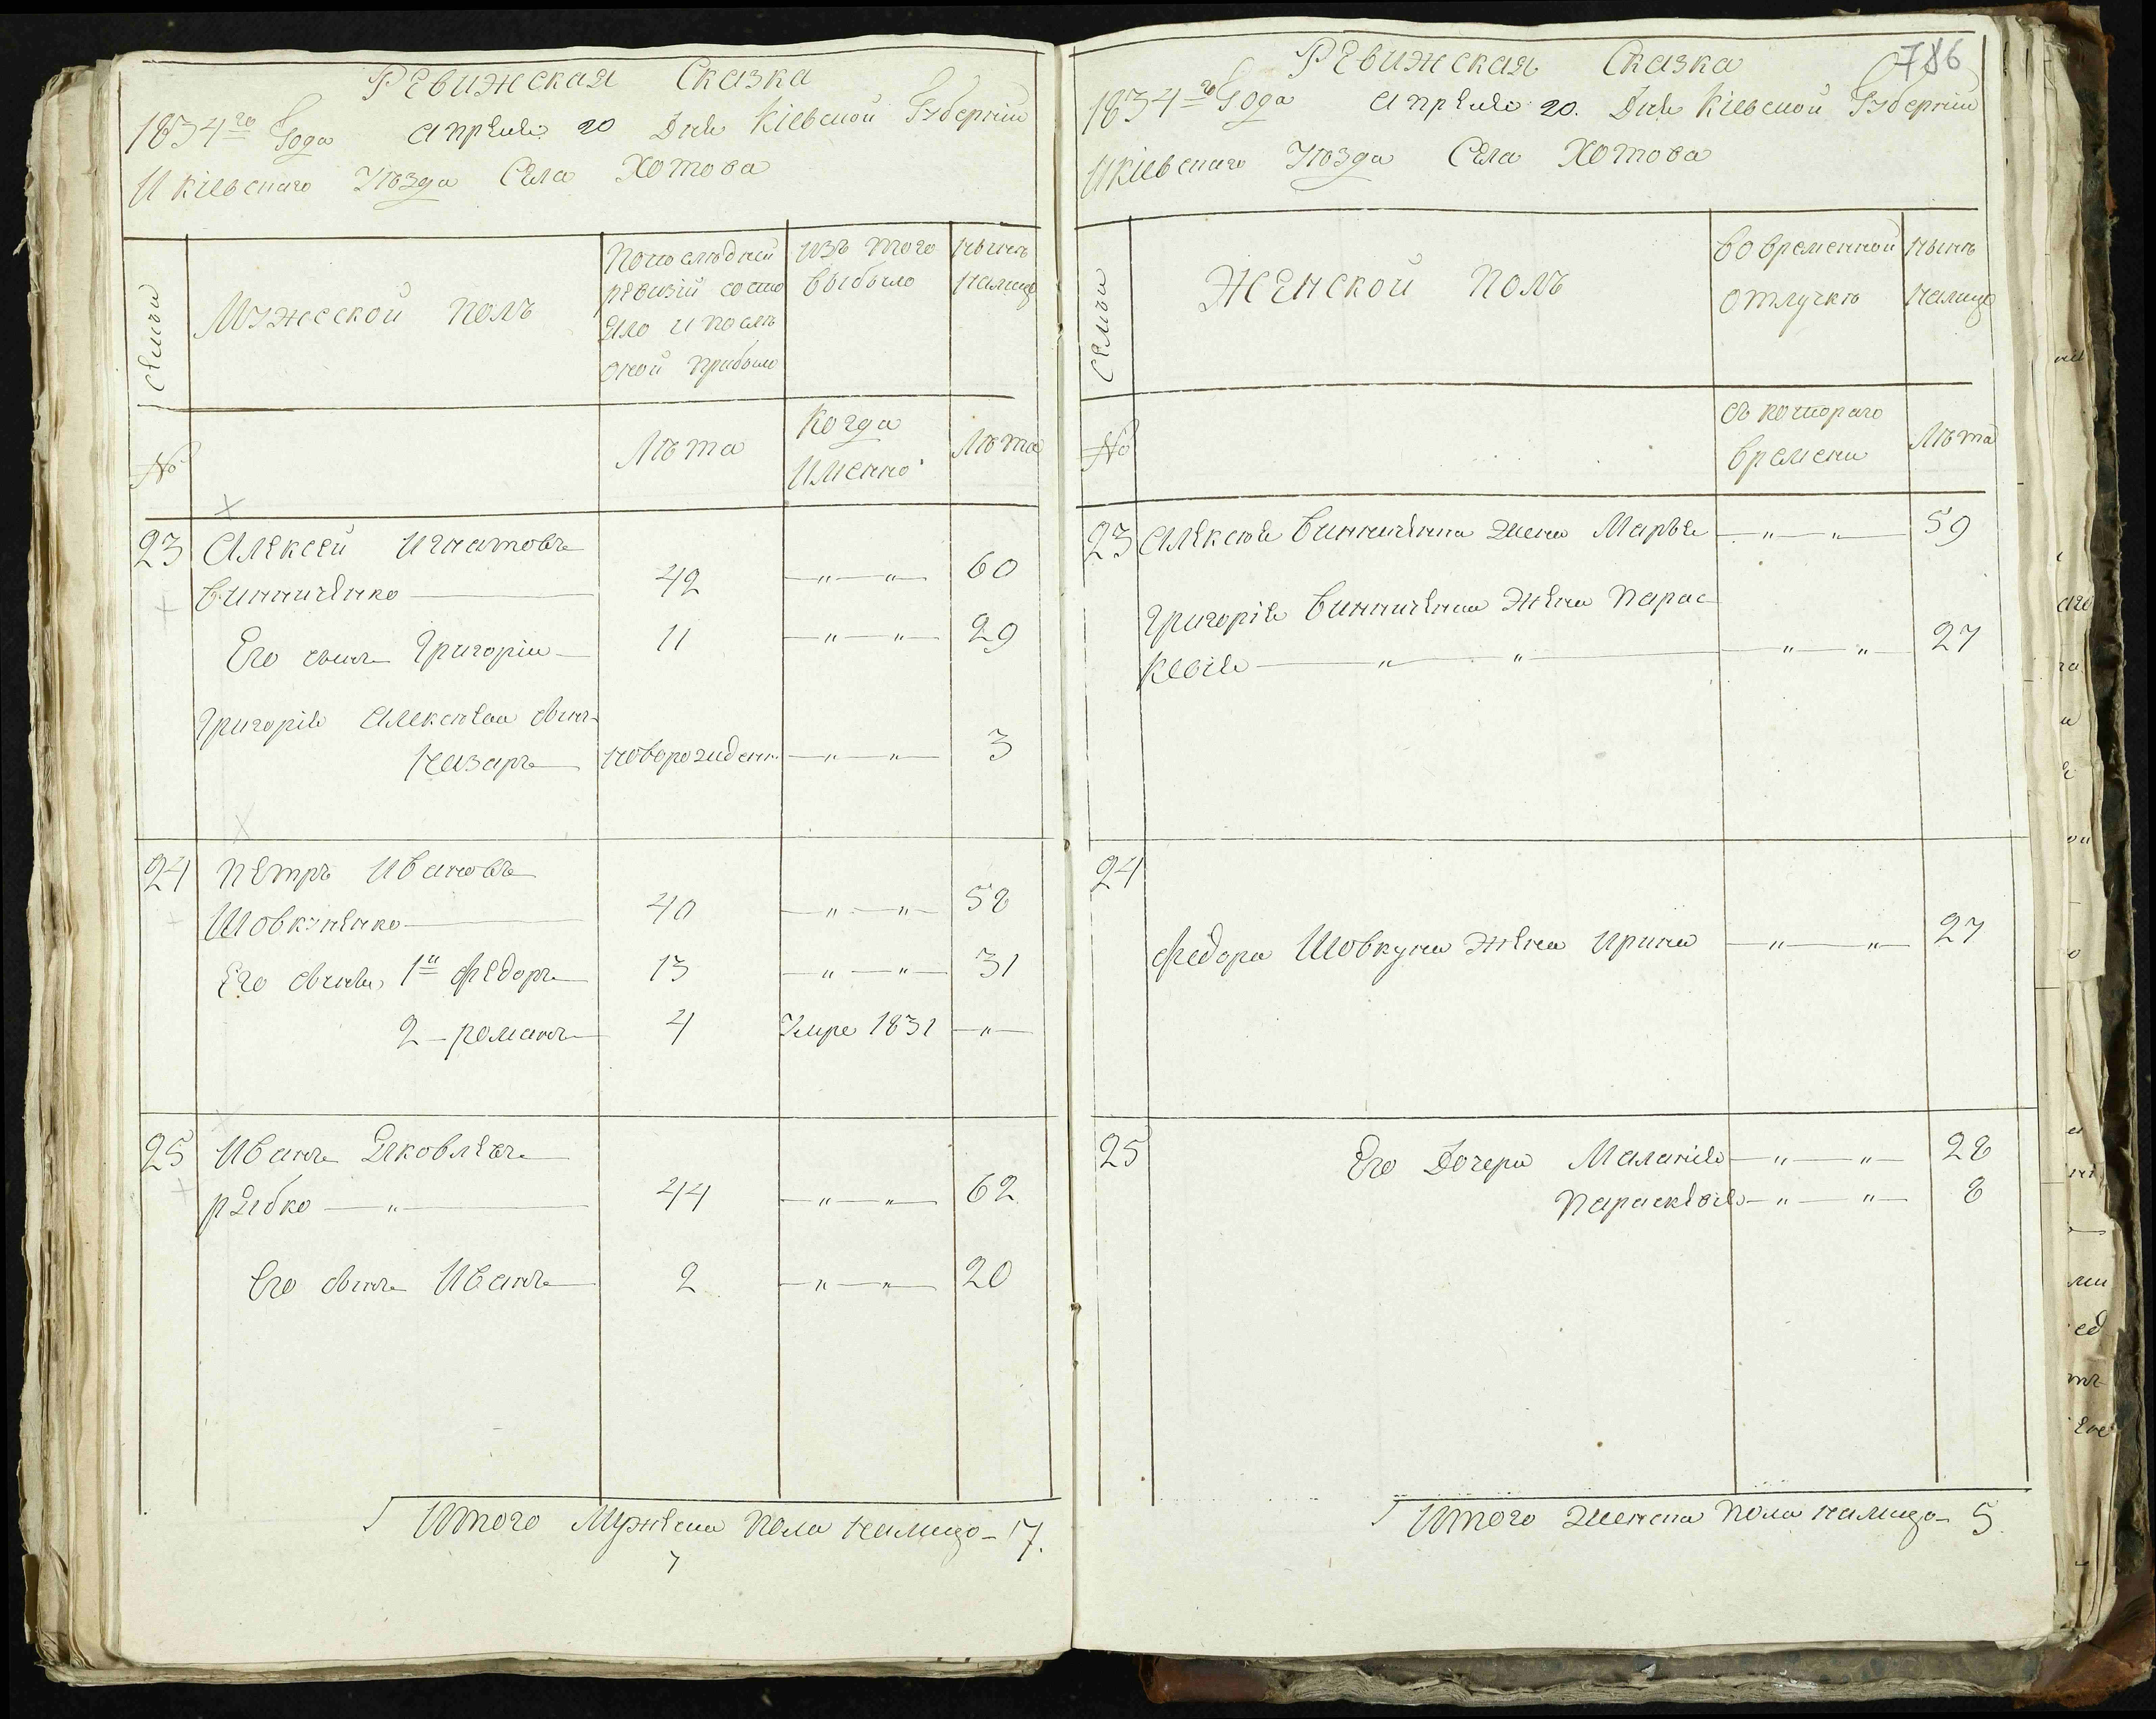 Ревижская Сказка
1834го Года Апреля 20 Дня Кіевской Губерніи
И кіевскаго Уѣзда Села Хотова
Семьи
Мужеской полъ
По последней ревизіи состояло и послѣ оной прибыло
изъ того выбыло
нынѣ налицо
№
Лѣта
Когда Именно
Лѣта
23 Алексей Игнатовъ
Винниченко 42 —"—"— 60
Его сынъ Григорій 11 —"—"— 29
Григорія Алексѣева сынъ
Назаръ новорожденъ —"—"— 3
24 Петръ Ивановъ
Шовкуненко 40 —"—"— 58
Его сыны, 1й Федоръ 13 —"—"— 31
2 – романъ 4 Умре 1831 —"—
25 Иванъ Яковлевъ
рябко —"— 44 —"—"— 62
Его сынъ Иванъ 2 —"—"— 20
Итого Мужеска пола налицо – 7.
7
786
Ревижская Сказка
1834го Года Апреля 20. Дня Кіевской Губерніи
И кіевскаго Уѣзда Села Хотова
Семьи
Женской полъ
во временной отлучкѣ
нынѣ налицо
№
съ котораго времени
Лѣта
23 Алексѣя Винниченка жена Марья —"—"— 59
Григорія Винниченка Жена Парас
кевія —"—"— —"—"— 27
24
Федора Шовкуна жена Ирина —"—"— 27
25 Его Дочери Маланія —"—"— 28
Параскевія —"—"— 8
Итого женска пола налицо – 5.